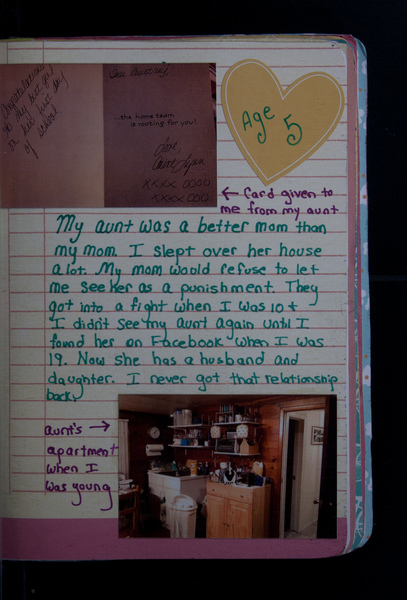 Congratulations
to my best girl
on her first day
of school
Dear
...the home team
is rooting for you!
Love,
Aunt
XXXX OOOO
XXXX OOO
Age
5
← Card given to
me from my aunt
My aunt was a better mom than
my mom. I slept over her house
a lot. My mom would refuse to let
me see her as a punishment. They
got into a fight when I was 10 +
I didn't see my aunt again until I
found her on Facebook when I was
19. Now she has a husband and
daughter. I never got that relationship
back.
aunt's →
apartment
when I
was young